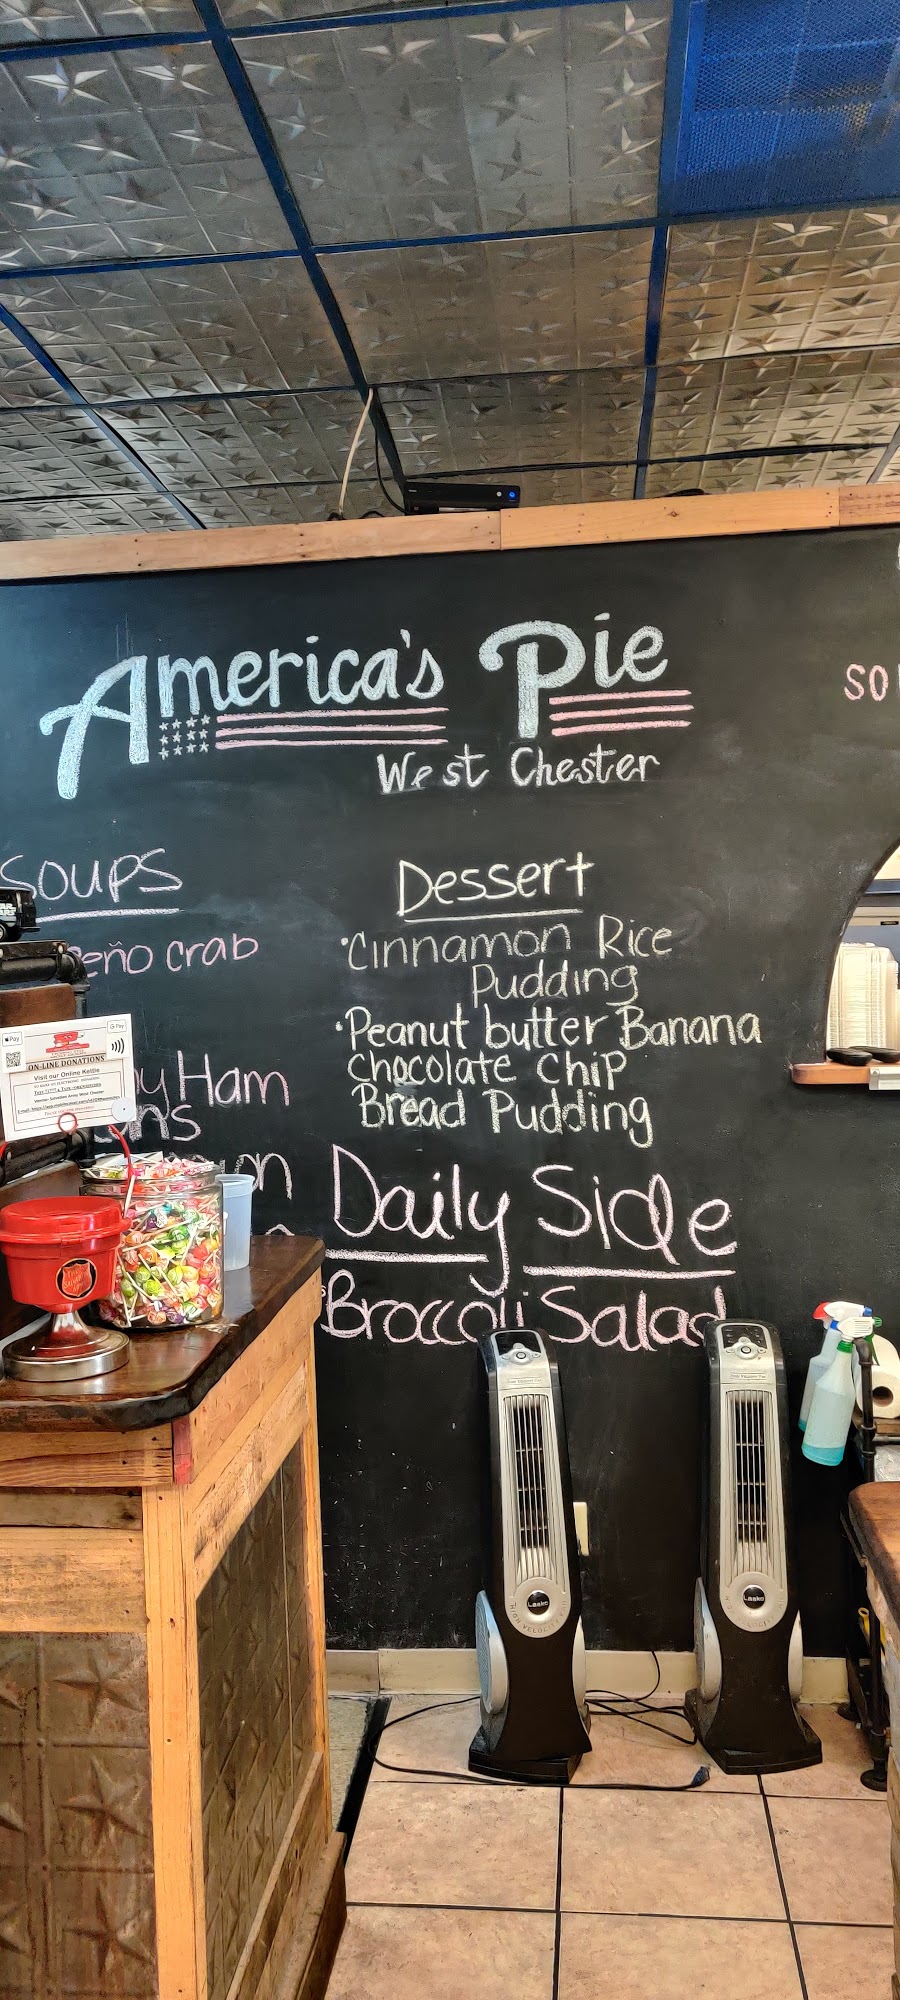 America's Pie
West Chester
SO
Soups
eño crab
Ham
Dessert
• Cinnamon Rice
Pudding
• Peanut butter Banana
chocolate chip
Bread Pudding
Daily Side
Broccoli Salad
Pay
G Pay
ON-LINE DONATIONS
Visit our Online Kettle
Lasko
Lasko